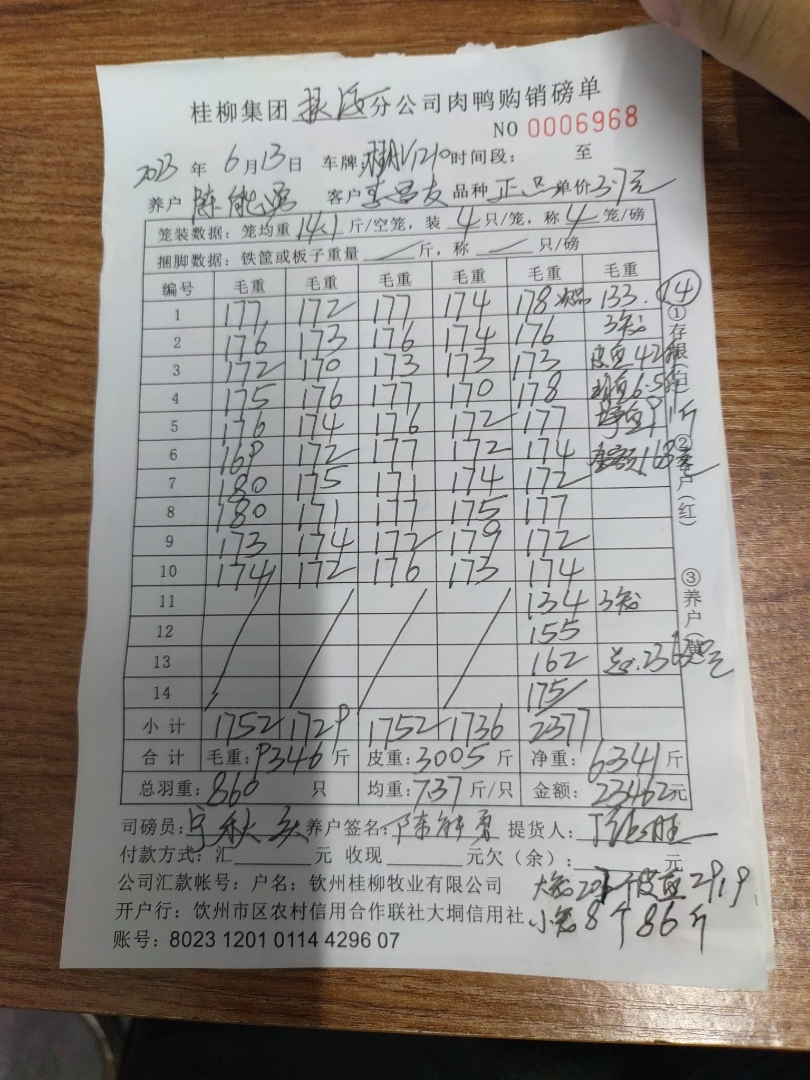 桂柳集团 分公司肉鸭购销磅单
NO 0006968
2023 年 6 月 13 日 车牌 时间段： 至
养户 陈能勇 客户 李昌友 品种 正品 单价 3.7元
笼装数据：笼均重 14.1 斤/空笼，装 4 只/笼，称 4 笼/磅
捆脚数据：铁筐或板子重量 斤，称 只/磅
编号 毛重 毛重 毛重 毛重 毛重 毛重 14
1 177 172 177 174 178 次品 133.
2 176 173 176 174 176 3笼
3 172 170 173 173 173 皮重 42斤
4 175 176 177 170 178 6.5
5 176 174 176 172 177 净重 91斤
6 169 172 177 172 174 金额 168元
7 180 175 171 174 172
8 180 171 177 175 177
9 173 174 172 179 172
10 174 172 176 173 174
11 134 3笼
12 155
13 162 总：23630元
14 175
小计 1752 1729 1752 1736 2377
合计 毛重：9346 斤 皮重：3005 斤 净重：6341 斤
总羽重：860 只 均重：7.37 斤/只 金额：23462元
司磅员： 养户签名：陈能勇 提货人：
付款方式：汇 元 收现 元欠（余）： 元
公司汇款帐号：户名：钦州桂柳牧业有限公司 大笼 207个皮重 2919
开户行：钦州市区农村信用合作联社大垌信用社 小笼 8个 86斤
账号：8023 1201 0114 4296 07
①存根（白）
②客户（红）
③养户（黄）